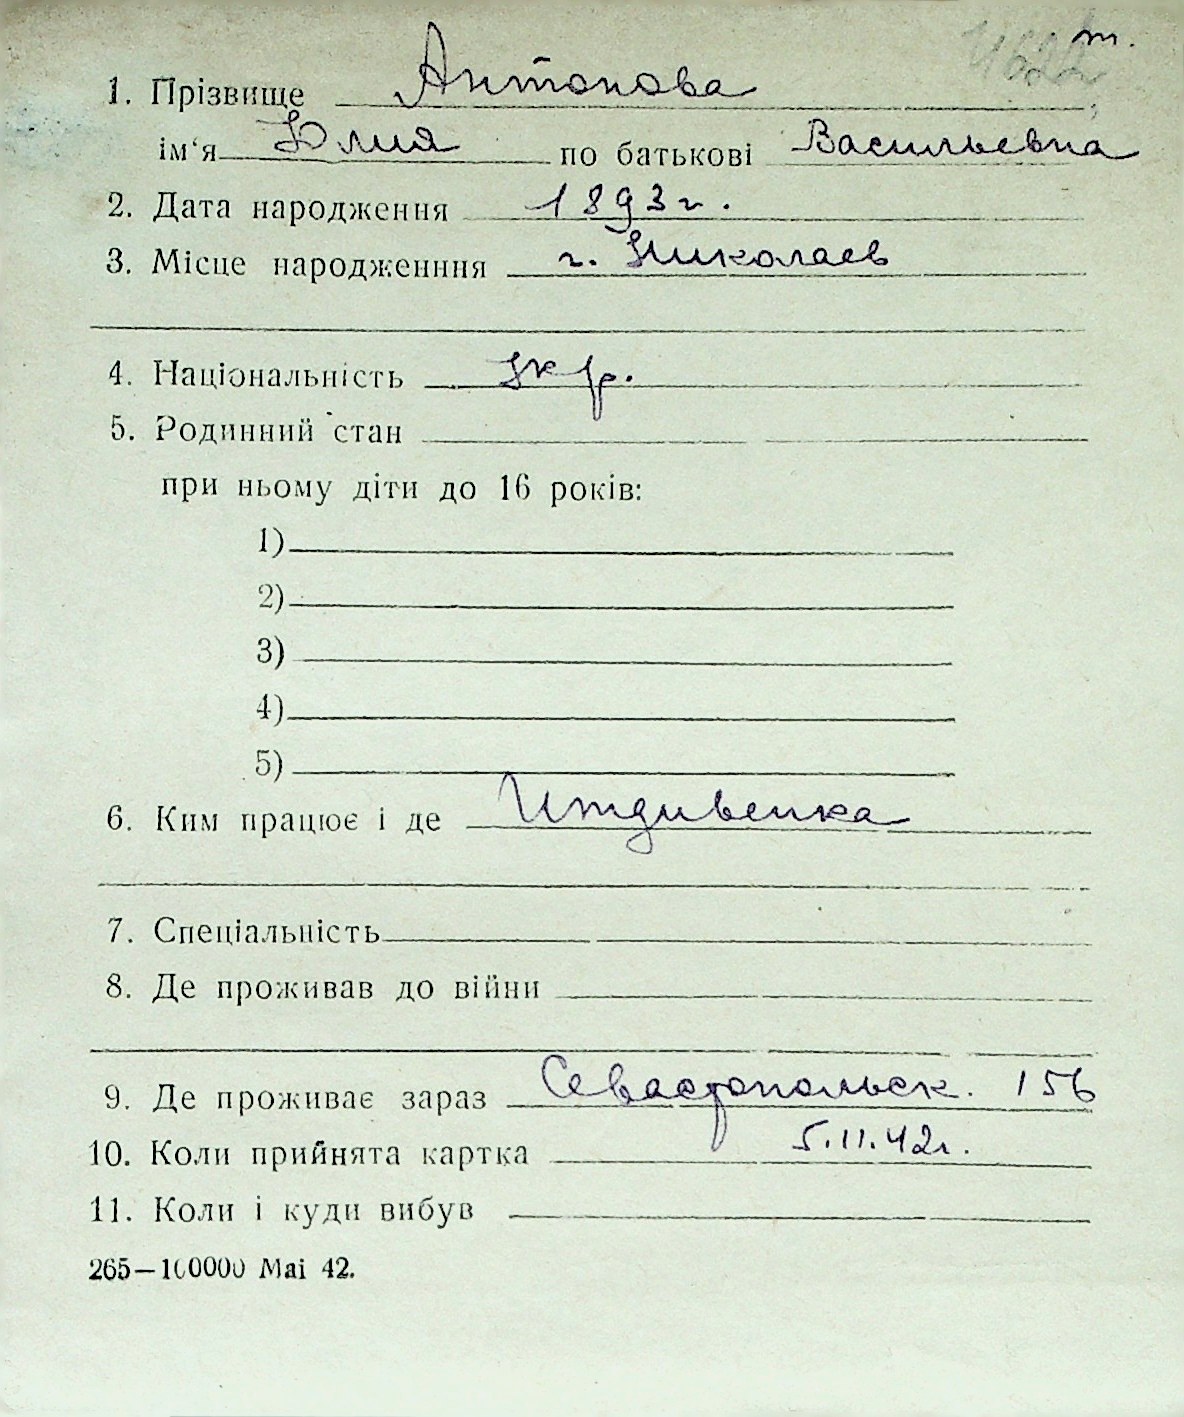 т.
1. Прізвище Антонова
ім‘я Юлия по батькові Васильевна
2. Дата народження 1893 г.
3. Місце народженння г. Николаев
4. Національність Укр.
5. Родинний стан
при ньому діти до 16 років:
1)
2)
3)
4)
5)
6. Ким працює і де Иждивенка
7. Спеціальність
8. Де проживав до війни
9. Де проживає зараз Севастопольск. 156
10. Коли прийнята картка 5.11.42г.
11. Коли і куди вибув
265—100000 Mai 42.